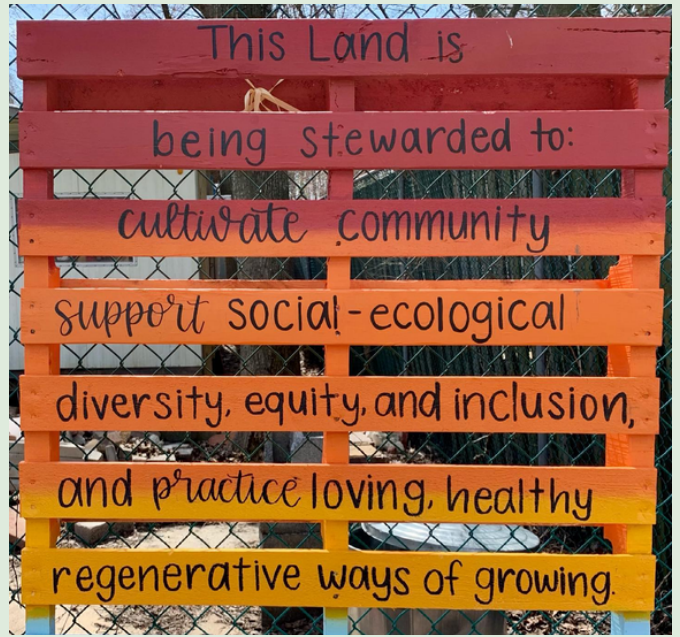 This Land is
being stewarded to:
cultivate community
support social-ecological
diversity, equity, and inclusion,
and practice loving, healthy
regenerative ways of growing.